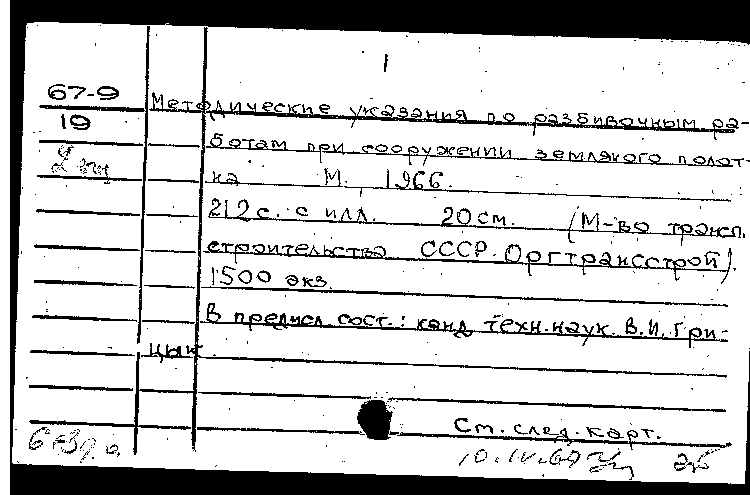 1
67-9
19
Методические указания по разбивочным ра-
ботам при сооружении земляного полот-
на М. 1966.
212 с. с илл. 20 см. (М-во трансп.
строительства СССР. Оргтрансстрой).
1500 экз.
В предисл. сост.: канд. техн. наук В.И. Гри-
цык.
См. след. карт.